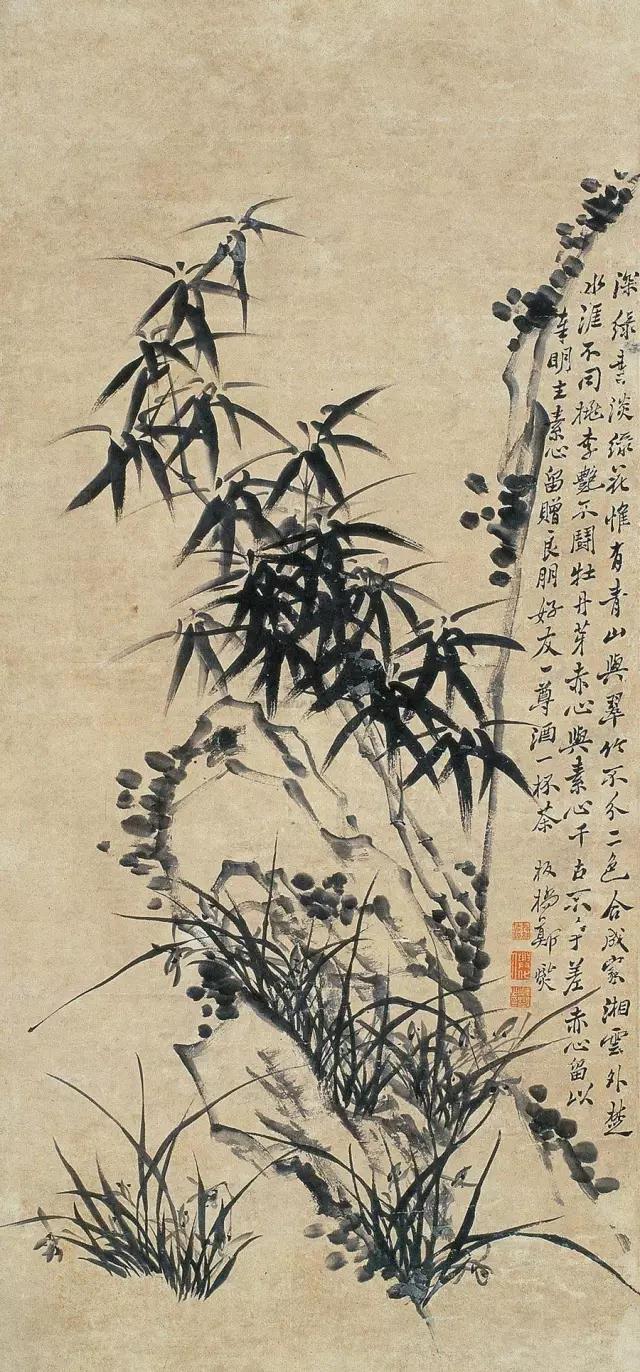 深綠葉淡綠花惟有青山與翠竹不分二色合成家湘雲外楚
水涯不同桃李艷不鬭牡丹芽赤心與素心千古不爭差赤心留以
奉明主素心留贈良朋好友一尊酒一杯茶 板橋鄭燮